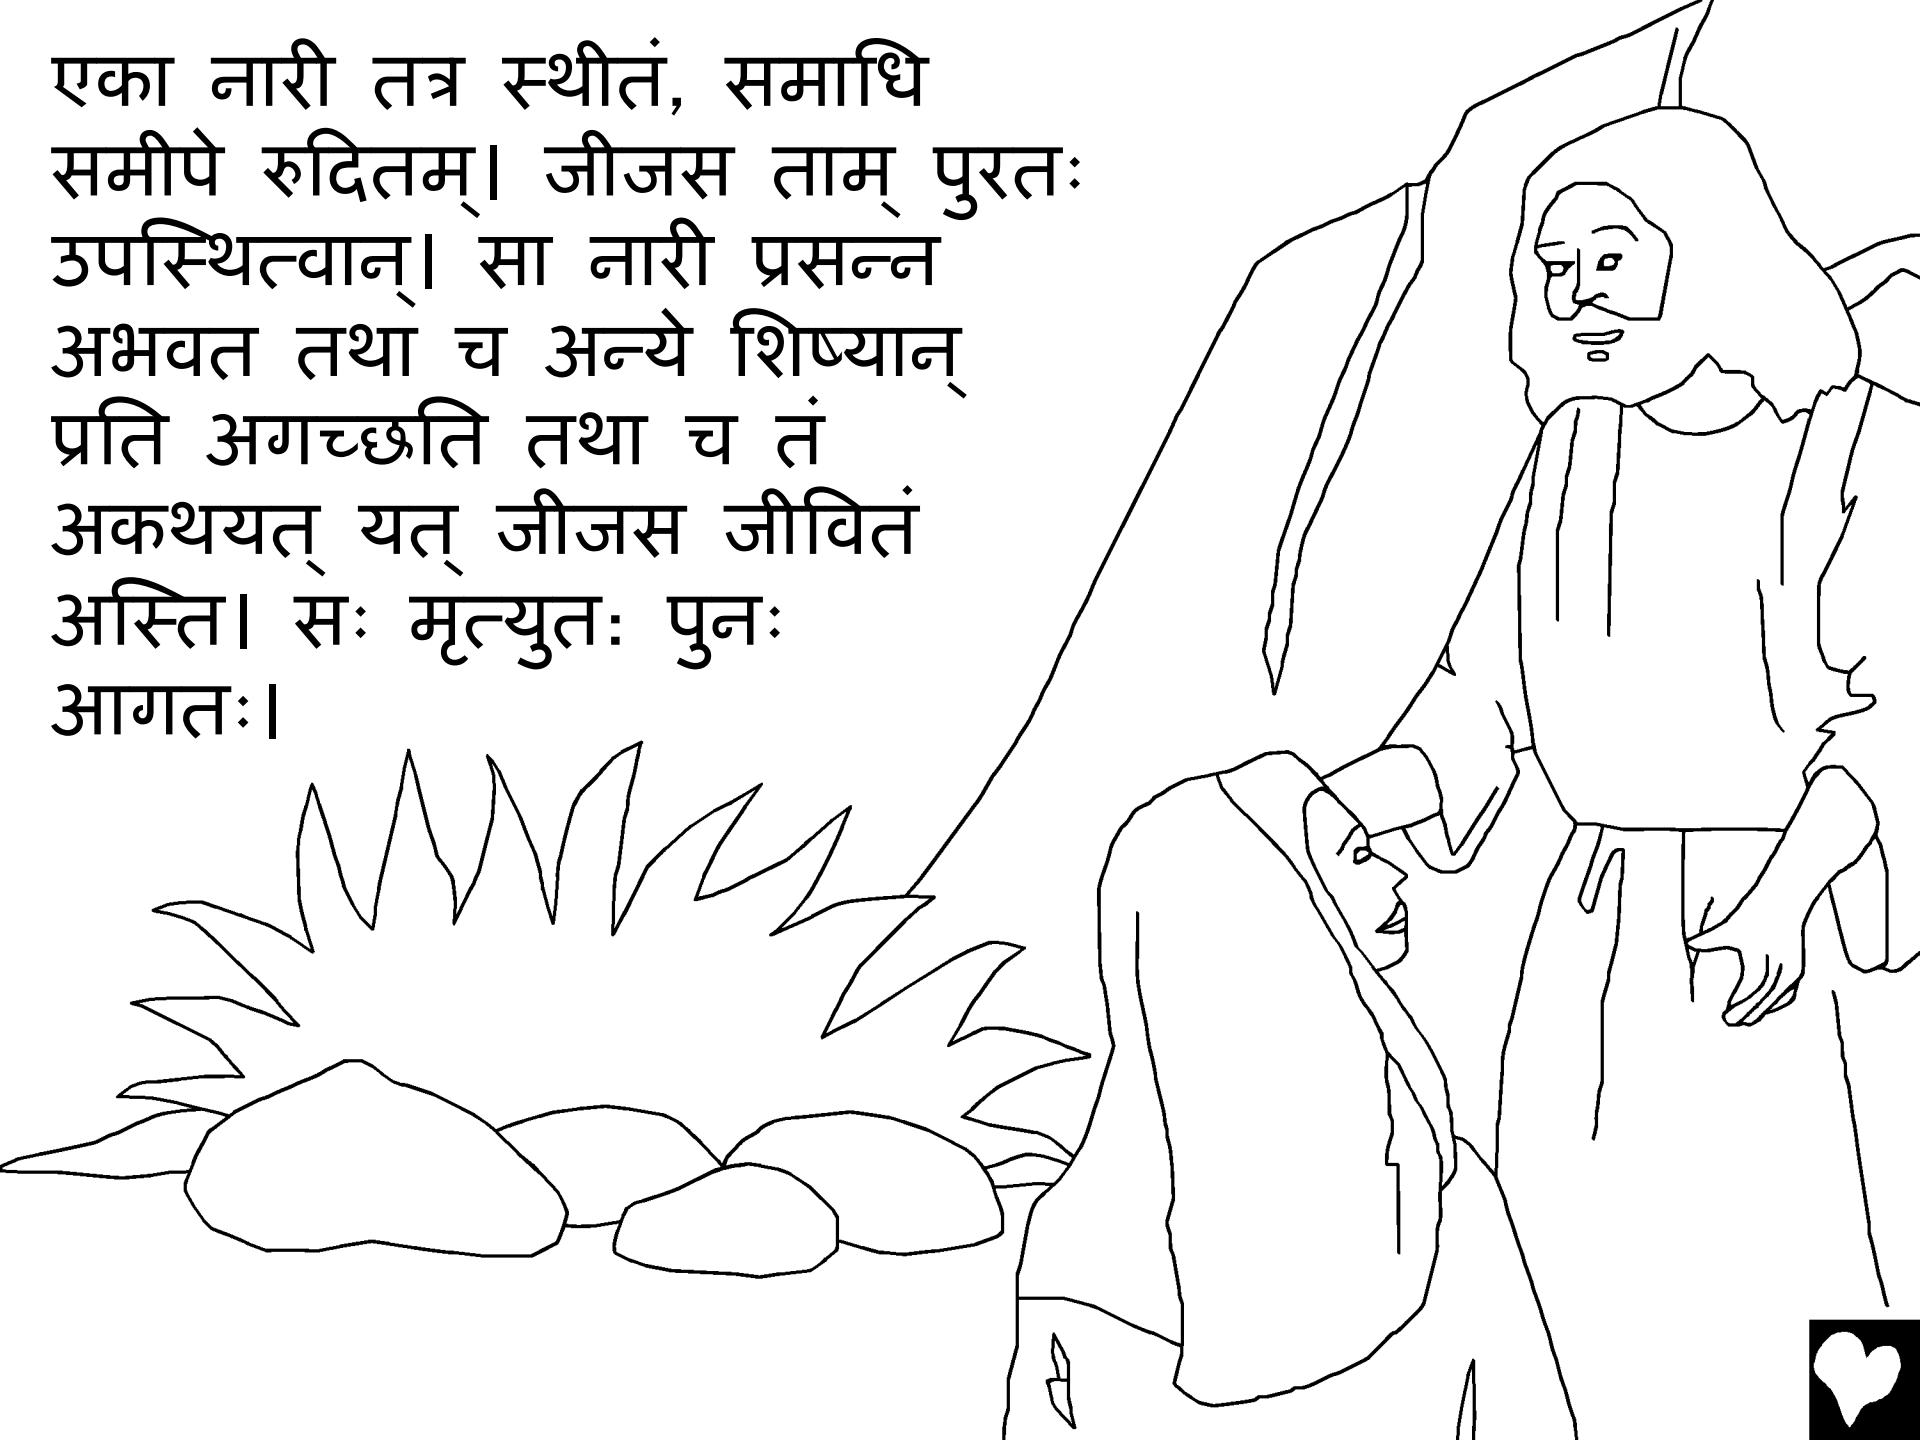 एका नारी तत्र स्थीतं, समाधि
समीपे रुदितम्। जीजस ताम् पुरतः
उपस्थित्वान्। सा नारी प्रसन्न
अभवत तथा च अन्ये शिष्यान्
प्रति अगच्छति तथा च तं
अकथयत् यत् जीजस जीवितं
अस्ति। सः मृत्युत: पुनः
आगतः।